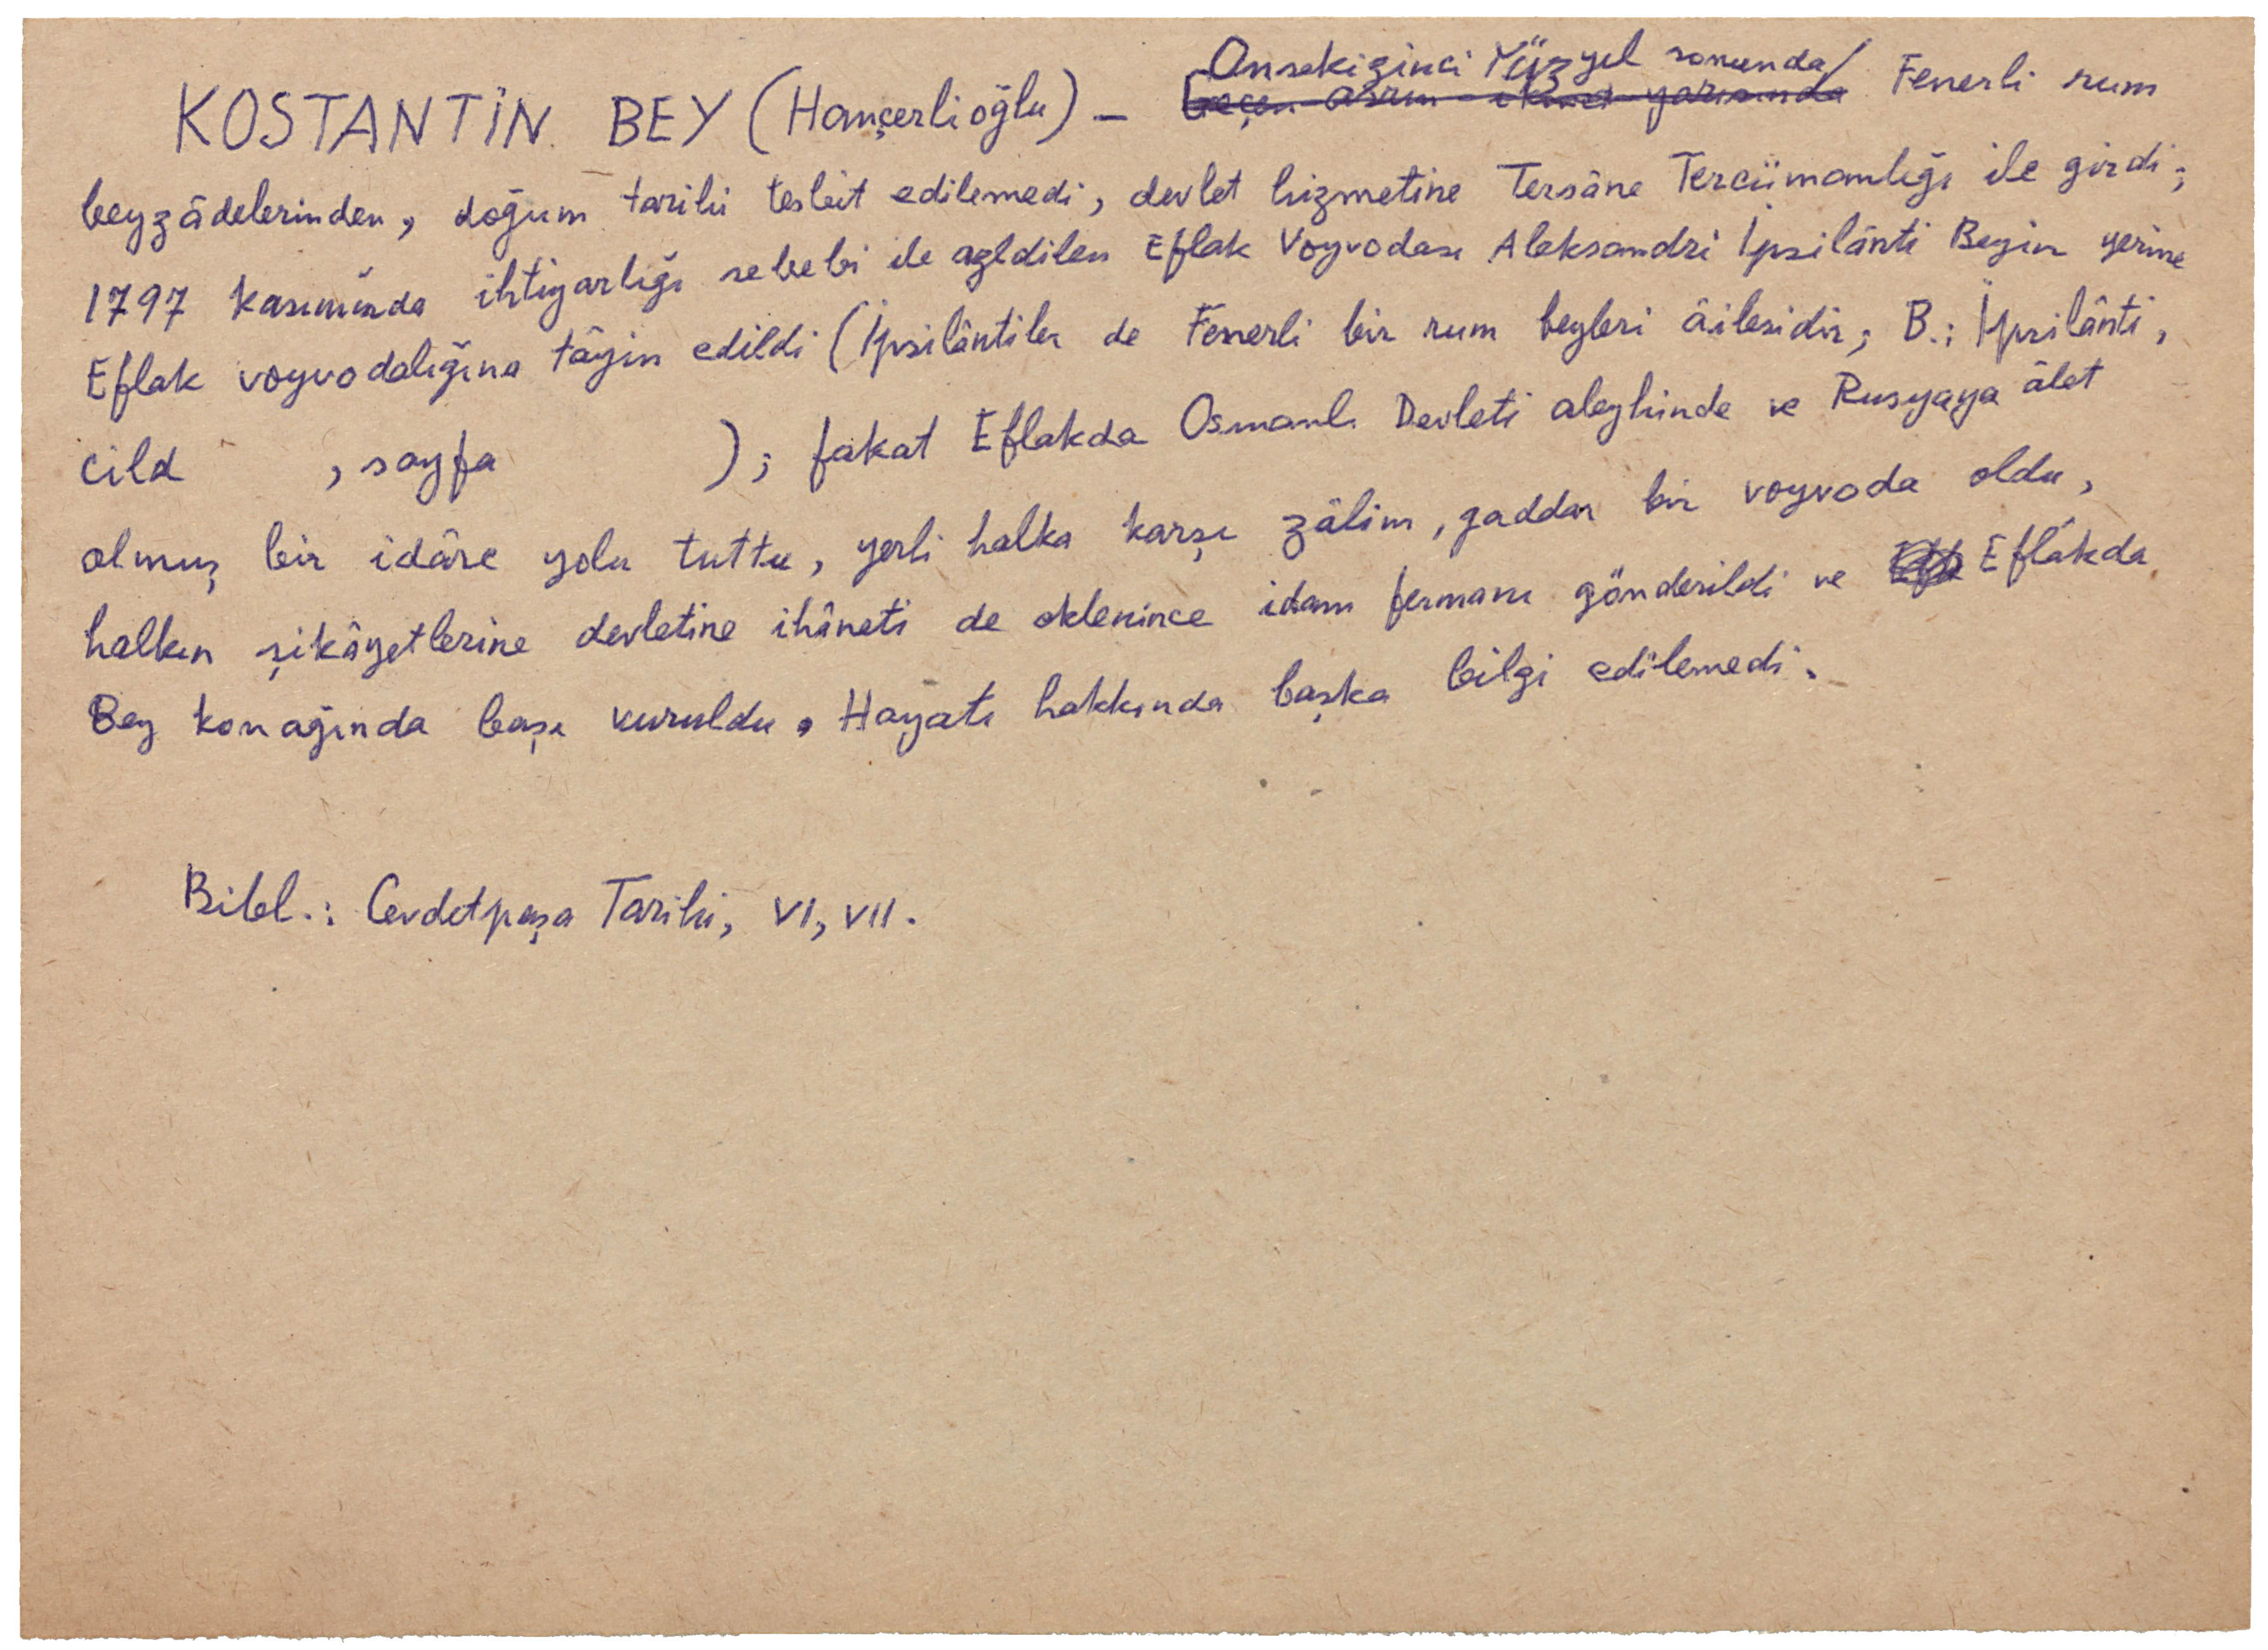 KOSTANTİN BEY (Hançerlioğlu) — Onsekizinci Yüzyıl sonunda Fenerli rum
Geçen asrın ikinci yarısında
beyzâdelerinden, doğum tarihi tesbit edilemedi, devlet hizmetine Tersâne Tercümanlığı ile girdi;
1797 kasımında ihtiyarlığı sebebi ile azldilen Eflak Voyvodası Aleksandri İpsilânti Beyin yerine
Eflak voyvodalığına tâyin edildi (İpsilântiler de Fenerli bir rum beyleri âilesidir; B.: İpsilânti,
cild , sayfa ); fakat Eflakda Osmanlı Devleti aleyhinde ve Rusyaya âlet
olmuş bir idâre yolu tuttu, yerli halka karşı zâlim, gaddar bir voyvoda oldu,
halkın şikâyetlerine devletine ihâneti de eklenince idam fermanı gönderildi ve Eflâkda
Bey konağında başı vuruldu. Hayatı hakkında başka bilgi edilemedi.
Bibl.: Cevdetpaşa Tarihi, VI, VII.